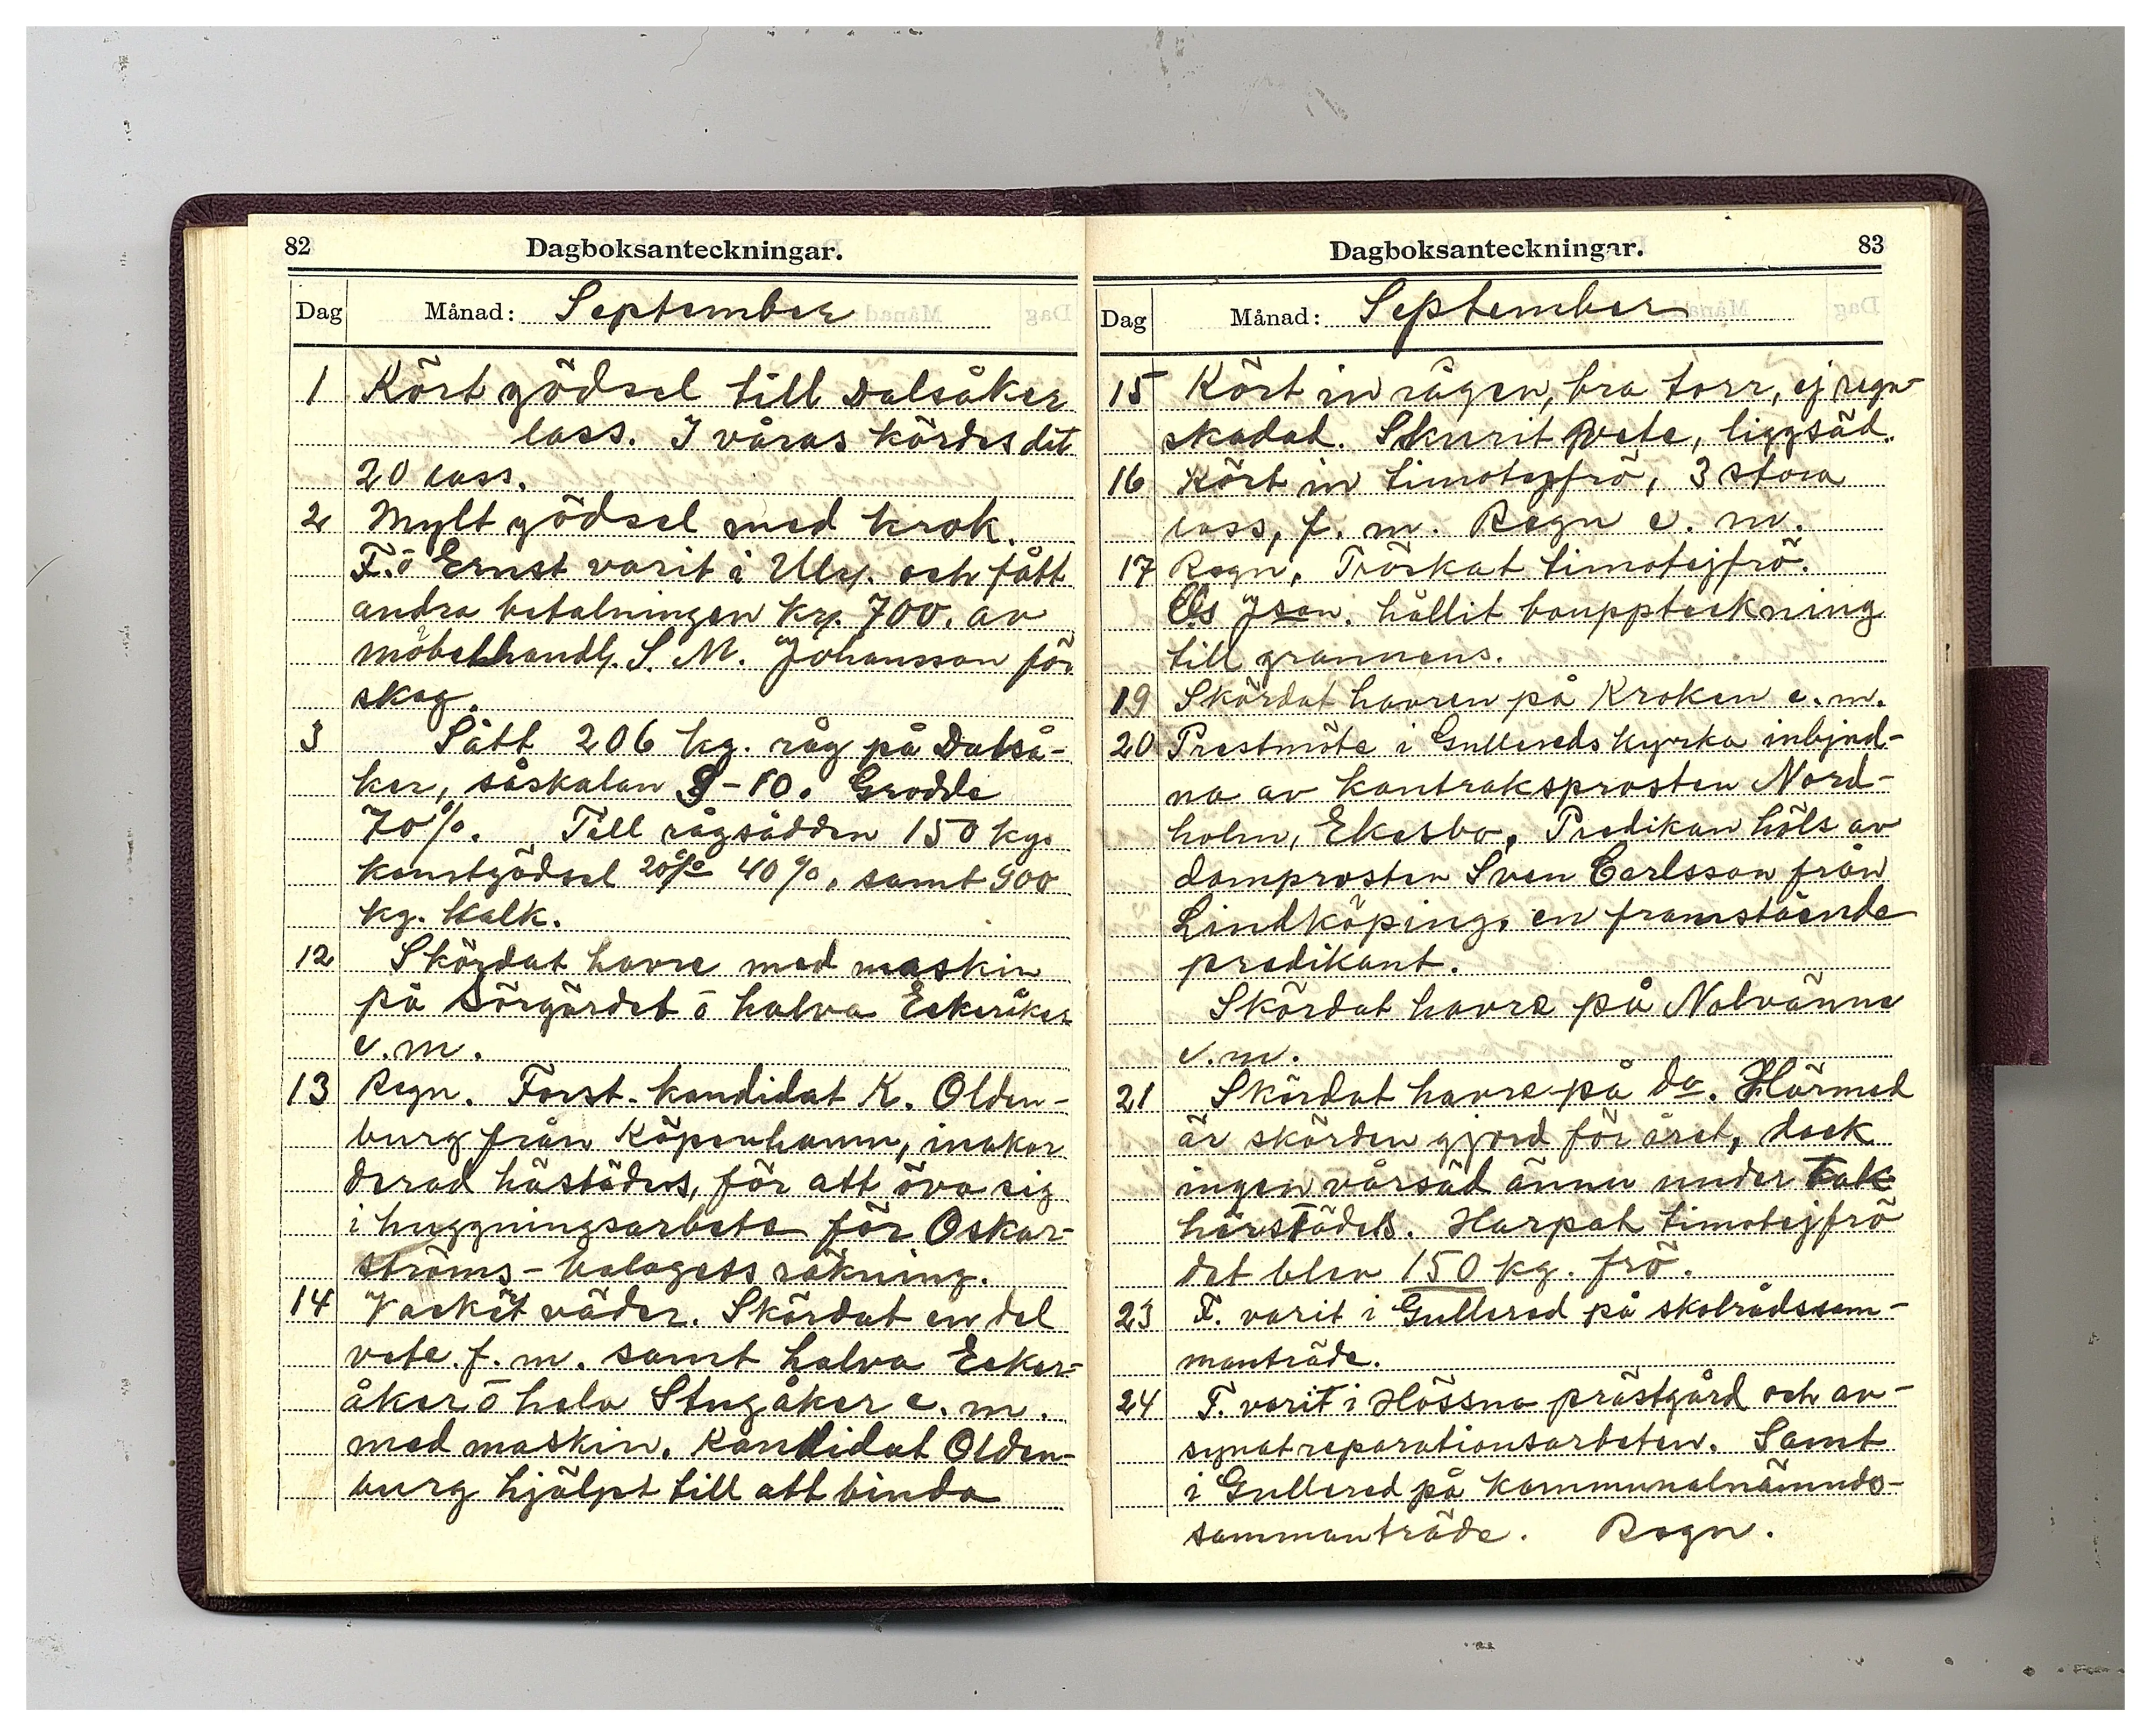 82
Dagboksanteckningar.
Dag
Månad: September
1 Kört gödsel till Dalsåker
lass. I våras kördes dit
20 lass.
2 Mylt gödsel med krok.
F. o Ernst varit i Ulr. och fått
andra betalningen kr. 700. av
möbelhandl. S. M. Johansson för
skog.
3 Sått 206 kg. råg på Dalså-
ker, såskalan 9-10. Grodde
70%. Till rågsådden 150 kg.
konstgödsel 20% 40%, samt 900
kg. kalk.
12 Skördat havre med maskin
på Sörgärdet o halva Eekeråker
e.m.
13 Regn. Forst. kandidat K. Olden-
burg från Köpenhamn, inakor
derad härstädes, för att öva sig
i huggningsarbete för Oskar-
ströms-bolagets räkning.
14 Vackert väder. Skördat en del
vete f. m. samt halva Eeker-
åker o hela Stugåker e. m.
med maskin. Kandidat Olden-
burg hjälpt till att binda
Dagboksanteckningar.
83
Dag
Månad: September
15 Kört in rågen, bra torr, ej regn-
skadad. Skurit vete, liggsäd.
16 Kört in timotejfrö, 3 stora
lass, f. m. Regn e. m.
17 Regn. Tröskat timotejfrö.
Json. hållit bouppteckning
till grannens.
19 Skördat havren på Kroken e. m.
20 Prestmöte i Gullereds kyrka inbjud-
na av kontraksprosten Nord-
holm, Ekesbo. Predikan höls av
domprosten Sven Carlsson från
Lindköping, en framstående
predikant.
Skördat havre på Nolvänna
e.m.
21 Skördat havre på do. Härmed
är skörden gjord för året, dock
ingen vårsäd ännu under tak
härstädes. Harpat timotejfrö
det blev 150 kg. frö.
23 F. varit i Gullered på skolrådssam-
manträde.
24 F. varit i Hössna prästgård och av-
synat reparationsarbeten. Samt
i Gullered på kommunalnämnds-
sammanträde. Regn.